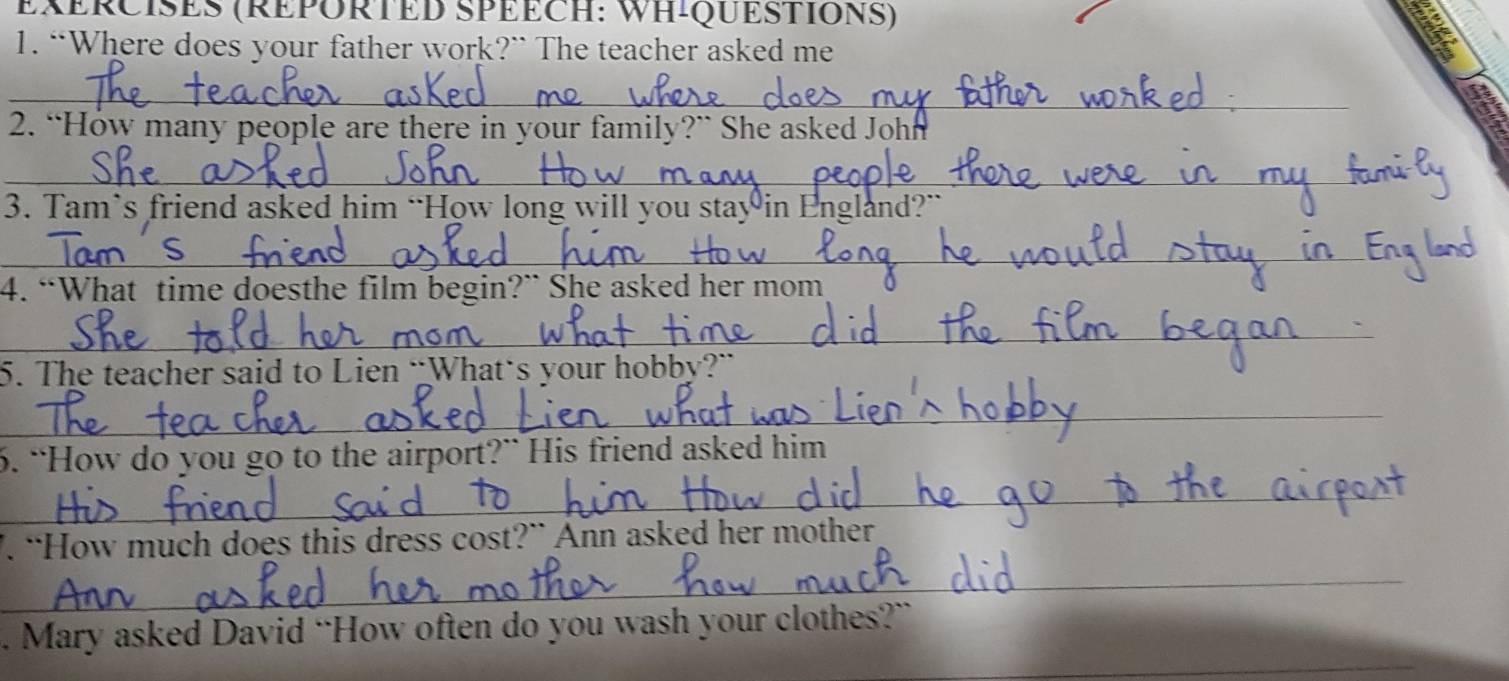 EXERCISES (REPORTED SPEECH: WH-QUESTIONS)
1. “Where does your father work?” The teacher asked me
The teacher asked me where does my father worked.
2. “How many people are there in your family?” She asked John
She asked John How many people there were in my family
3. Tam's friend asked him “How long will you stay in England?”
Tam's friend asked him How long he would stay in England
4. “What time doesthe film begin?” She asked her mom
She told her mom what time did the film began.
5. The teacher said to Lien “What's your hobby?”
The teacher asked Lien what was Lien's hobby
6. “How do you go to the airport?” His friend asked him
His friend said to him How did he go to the airport
7. “How much does this dress cost?” Ann asked her mother
Ann asked her mother how much did
. Mary asked David “How often do you wash your clothes?”